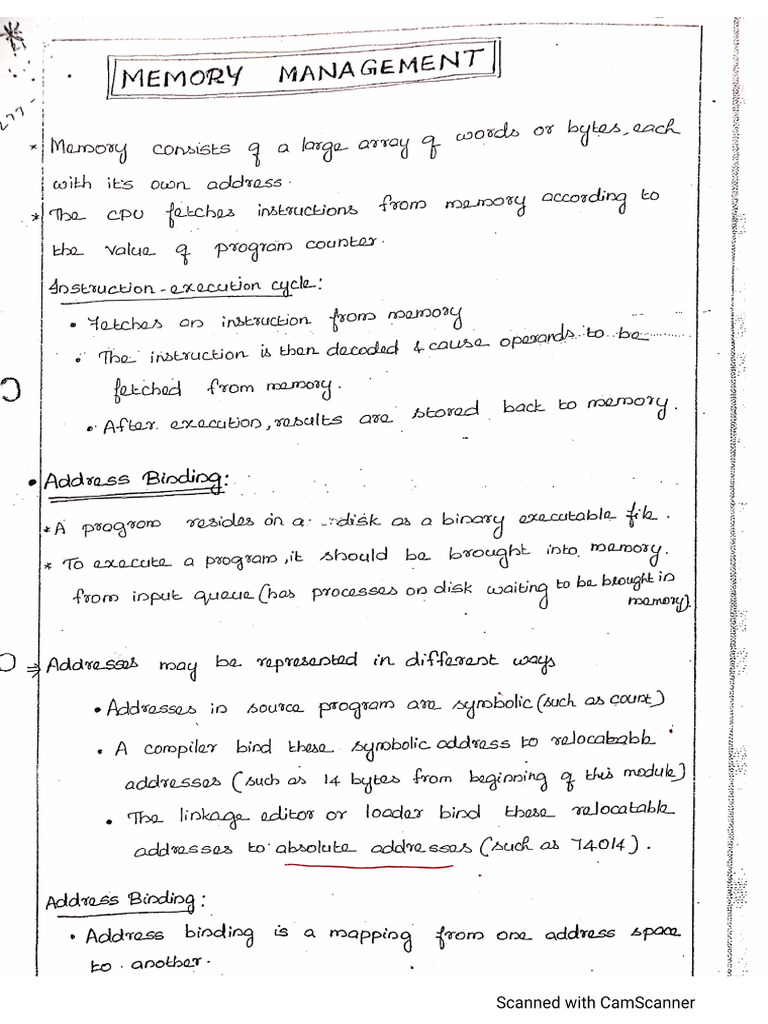 277 -
MEMORY MANAGEMENT
* Memory consists of a large array of words or bytes, each
with it's own address.
* The CPU fetches instructions from memory according to
the value of program counter.
Instruction-execution cycle:
• Fetches an instruction from memory
• The instruction is then decoded & cause operands to be
fetched from memory.
• After execution, results are stored back to memory.
• Address Binding:
* A program resides on a disk as a binary executable file.
* To execute a program, it should be brought into memory.
from input queue (has processes on disk waiting to be brought in
memory)
⇒ Addresses may be represented in different ways
• Addresses in source program are symbolic (such as count)
• A compiler bind these symbolic address to relocatable
addresses (such as 14 bytes from beginning of this module)
• The linkage editor or loader bind these relocatable
addresses to absolute addresses (such as 74014).
Address Binding:
• Address binding is a mapping from one address space
to another.
Scanned with CamScanner